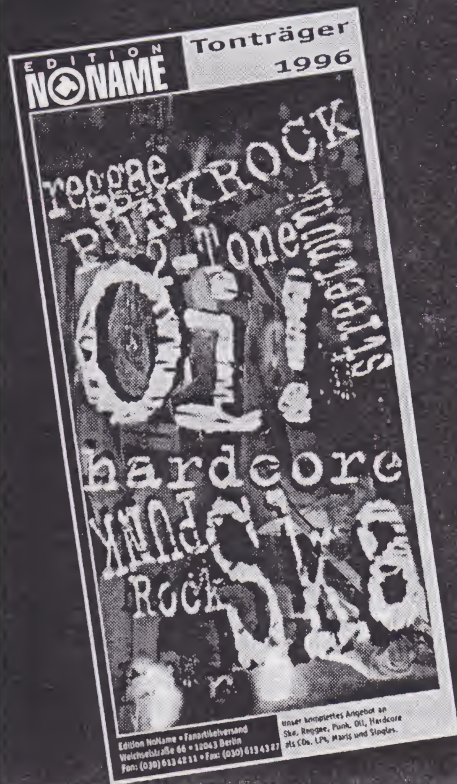 EDITION
NONAME
Tonträger
1996
reggae
PUNKROCK
2-Tone
streetpunk
Oi!
hardcore
PUNK
ROCK
SKA
Edition NoName • Fanartikelversand
Weichselstraße 66 • 12043 Berlin
Fon: (030) 613 42 11 • Fax: (030) 613 43 87
Unser komplettes Angebot an
Ska, Reggae, Punk, Oi!, Hardcore
als CDs, LPs, Maxis und Singles.